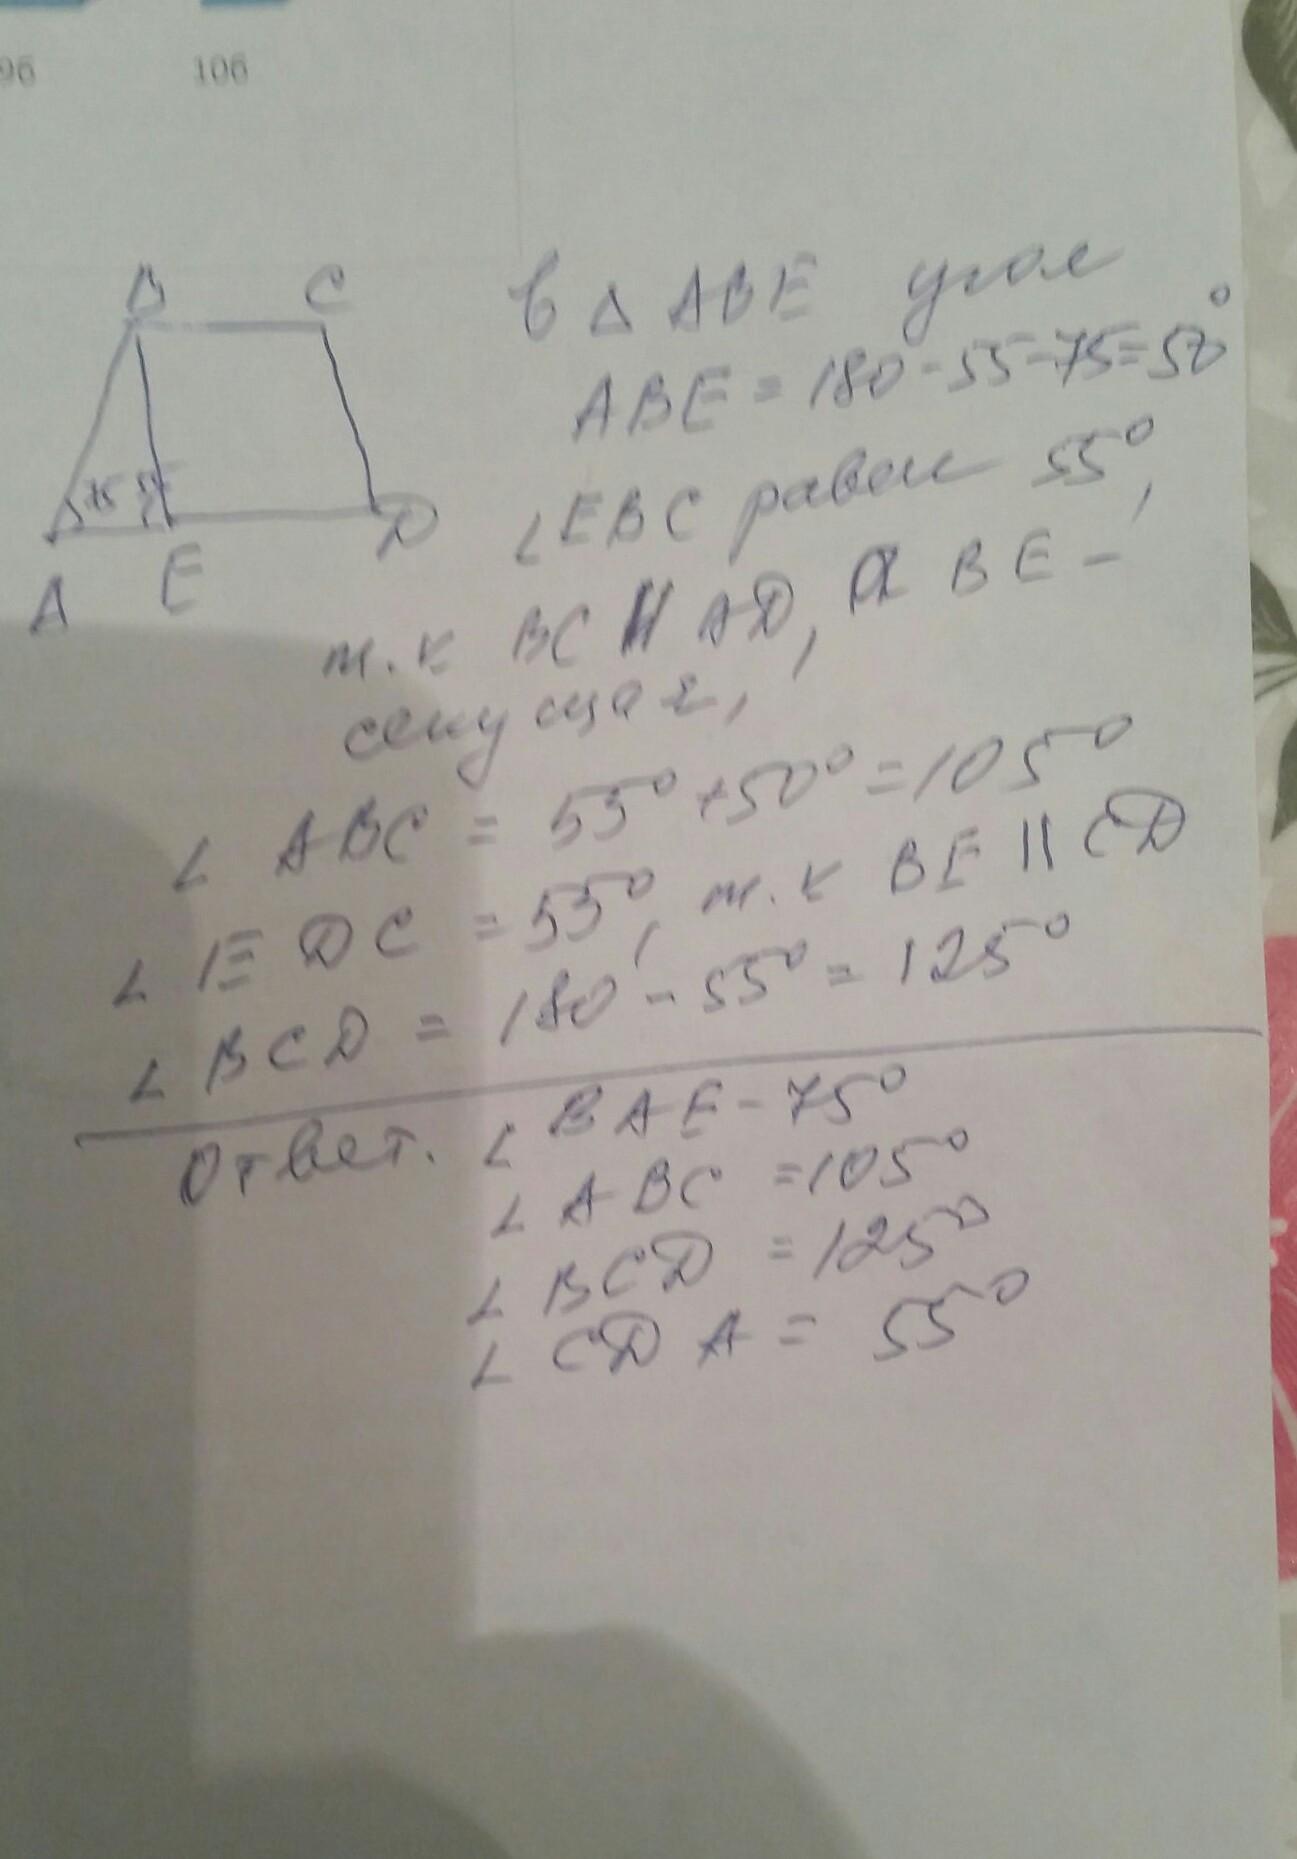 96 106
B C
75 55
A E D
В △ ABE угол
ABE = 180-55-75=50°
∠EBC равен 55°,
т.к BC || AD, а BE -
секущая,
∠ ABC = 55°+50°=105°
∠ EDC = 55°, т.к BE || CD
∠ BCD = 180-55°=125°
Ответ. ∠ BAE-75°
∠ ABC =105°
∠ BCD =125°
∠ CDA = 55°